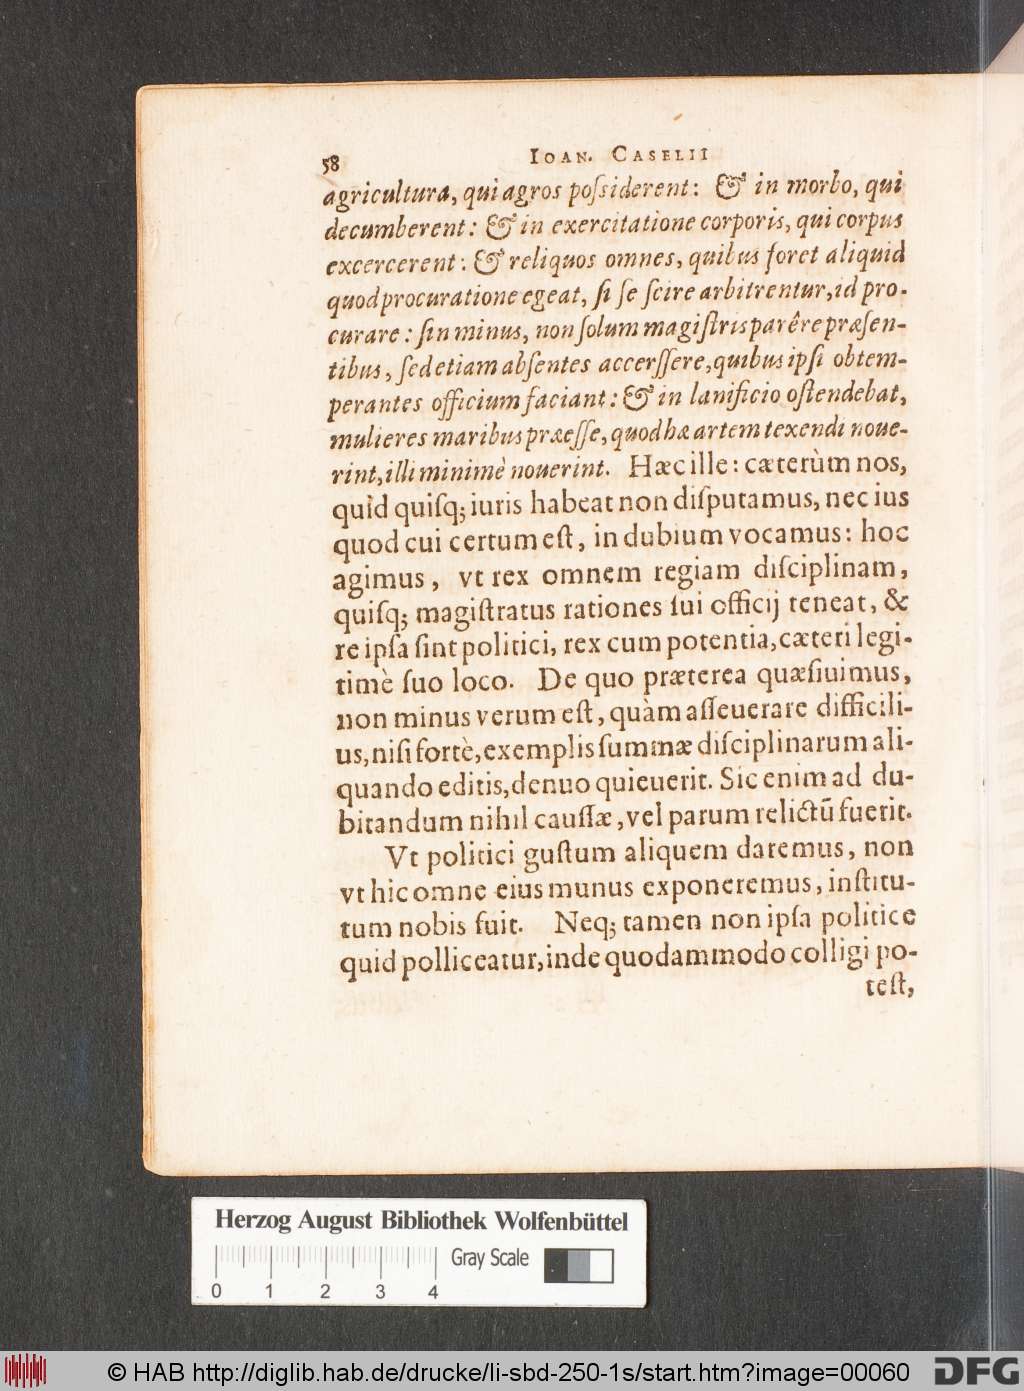 58
IOAN. CASELII
agricultura, qui agros poſsiderent: & in morbo, qui
decumberent: & in exercitatione corporis, qui corpus
excercerent: & reliquos omnes, quibus foret aliquid
quod procuratione egeat, ſi ſe ſcire arbitrentur, id pro-
curare: ſin minus, non ſolum magiſtris parêre præſen-
tibus, ſed etiam abſentes accerſſere, quibus ipſi obtem-
perantes officium faciant: & in lanificio oſtendebat,
mulieres maribus præeſſe, quod hæ artem texendi noue-
rint, illi minimè nouerint. Hæc ille: cæterùm nos,
quid quiſq; iuris habeat non diſputamus, nec ius
quod cui certum eſt, in dubium vocamus: hoc
agimus, vt rex omnem regiam diſciplinam,
quiſq; magiſtratus rationes ſui officij teneat, &
re ipſa ſint politici, rex cum potentia, cæteri legi-
timè ſuo loco. De quo præterea quæſiuimus,
non minus verum eſt, quàm aſſeuerare difficili-
us, niſi fortè, exemplis ſummæ diſciplinarum ali-
quando editis, denuo quieuerit. Sic enim ad du-
bitandum nihil cauſſæ, vel parum relictū fuerit.
Vt politici guſtum aliquem daremus, non
vt hic omne eius munus exponeremus, inſtitu-
tum nobis fuit. Neq; tamen non ipſa politice
quid polliceatur, inde quodammodo colligi po-
teſt,
Herzog August Bibliothek Wolfenbüttel
Gray Scale
0 1 2 3 4
© HAB http://diglib.hab.de/drucke/li-sbd-250-1s/start.htm?image=00060
DFG